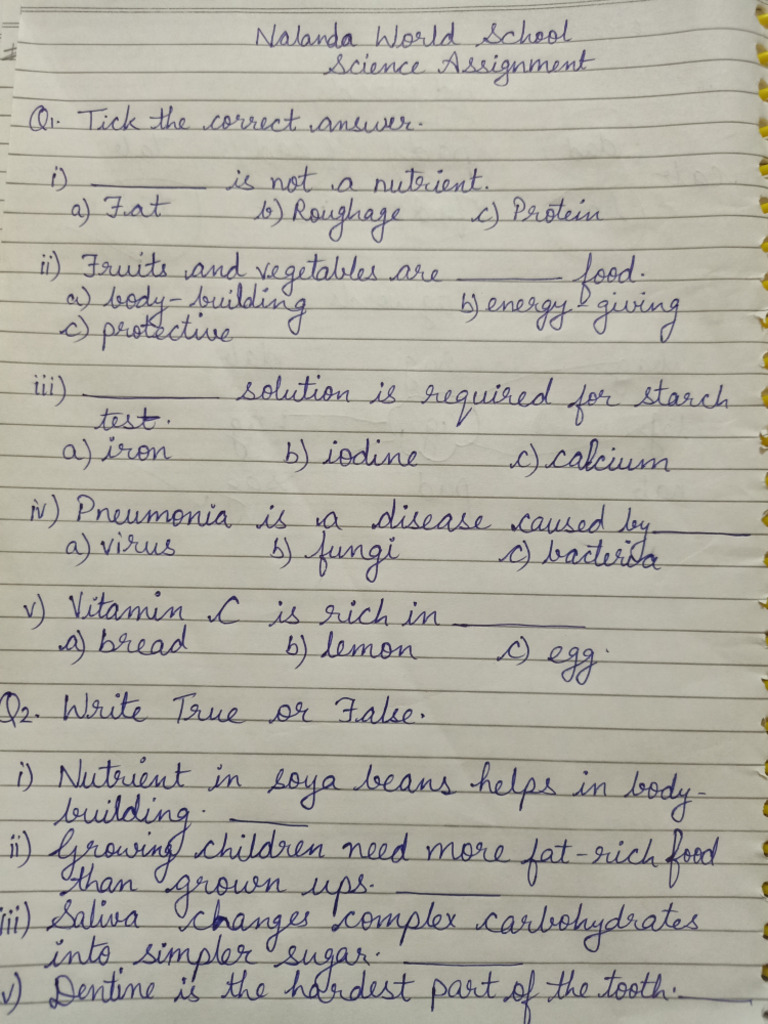 Nalanda World School
Science Assignment
Q1. Tick the correct answer.
i) ________ is not a nutrient.
a) Fat b) Roughage c) Protein
ii) Fruits and vegetables are ________ food.
a) body-building b) energy-giving
c) protective
iii) ________ solution is required for starch
test.
a) iron b) iodine c) calcium
iv) Pneumonia is a disease caused by ________
a) virus b) fungi c) bacteria
v) Vitamin C is rich in ________
a) bread b) lemon c) egg.
Q2. Write True or False.
i) Nutrient in soya beans helps in body-
building. ________
ii) Growing children need more fat-rich food
than grown ups. ________
iii) Saliva changes complex carbohydrates
into simpler sugar. ________
v) Dentine is the hardest part of the tooth. ________